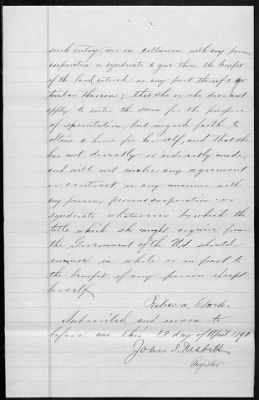 such entry are in collusion with any person
corporation or syndicate to give them the benefit
of the land entered or any part thereof or
timber thereon; that she or she does not
apply to enter the same for the purpose
of speculation, but in good faith to
obtain a home for her self, and that she
has not directly or indirectly made,
and will not make, any agreement
or contract in any manner with
any person, persons corporation or
syndicate whatsoever by which the
title which she might acquire from
the Government of the U.S. should
inure in whole or in part to
the benefit of any person except
herself,
Rebecca Clark.
Subscribed and sworn to
before me this 12 day of April
John I. Nesbitt
Register